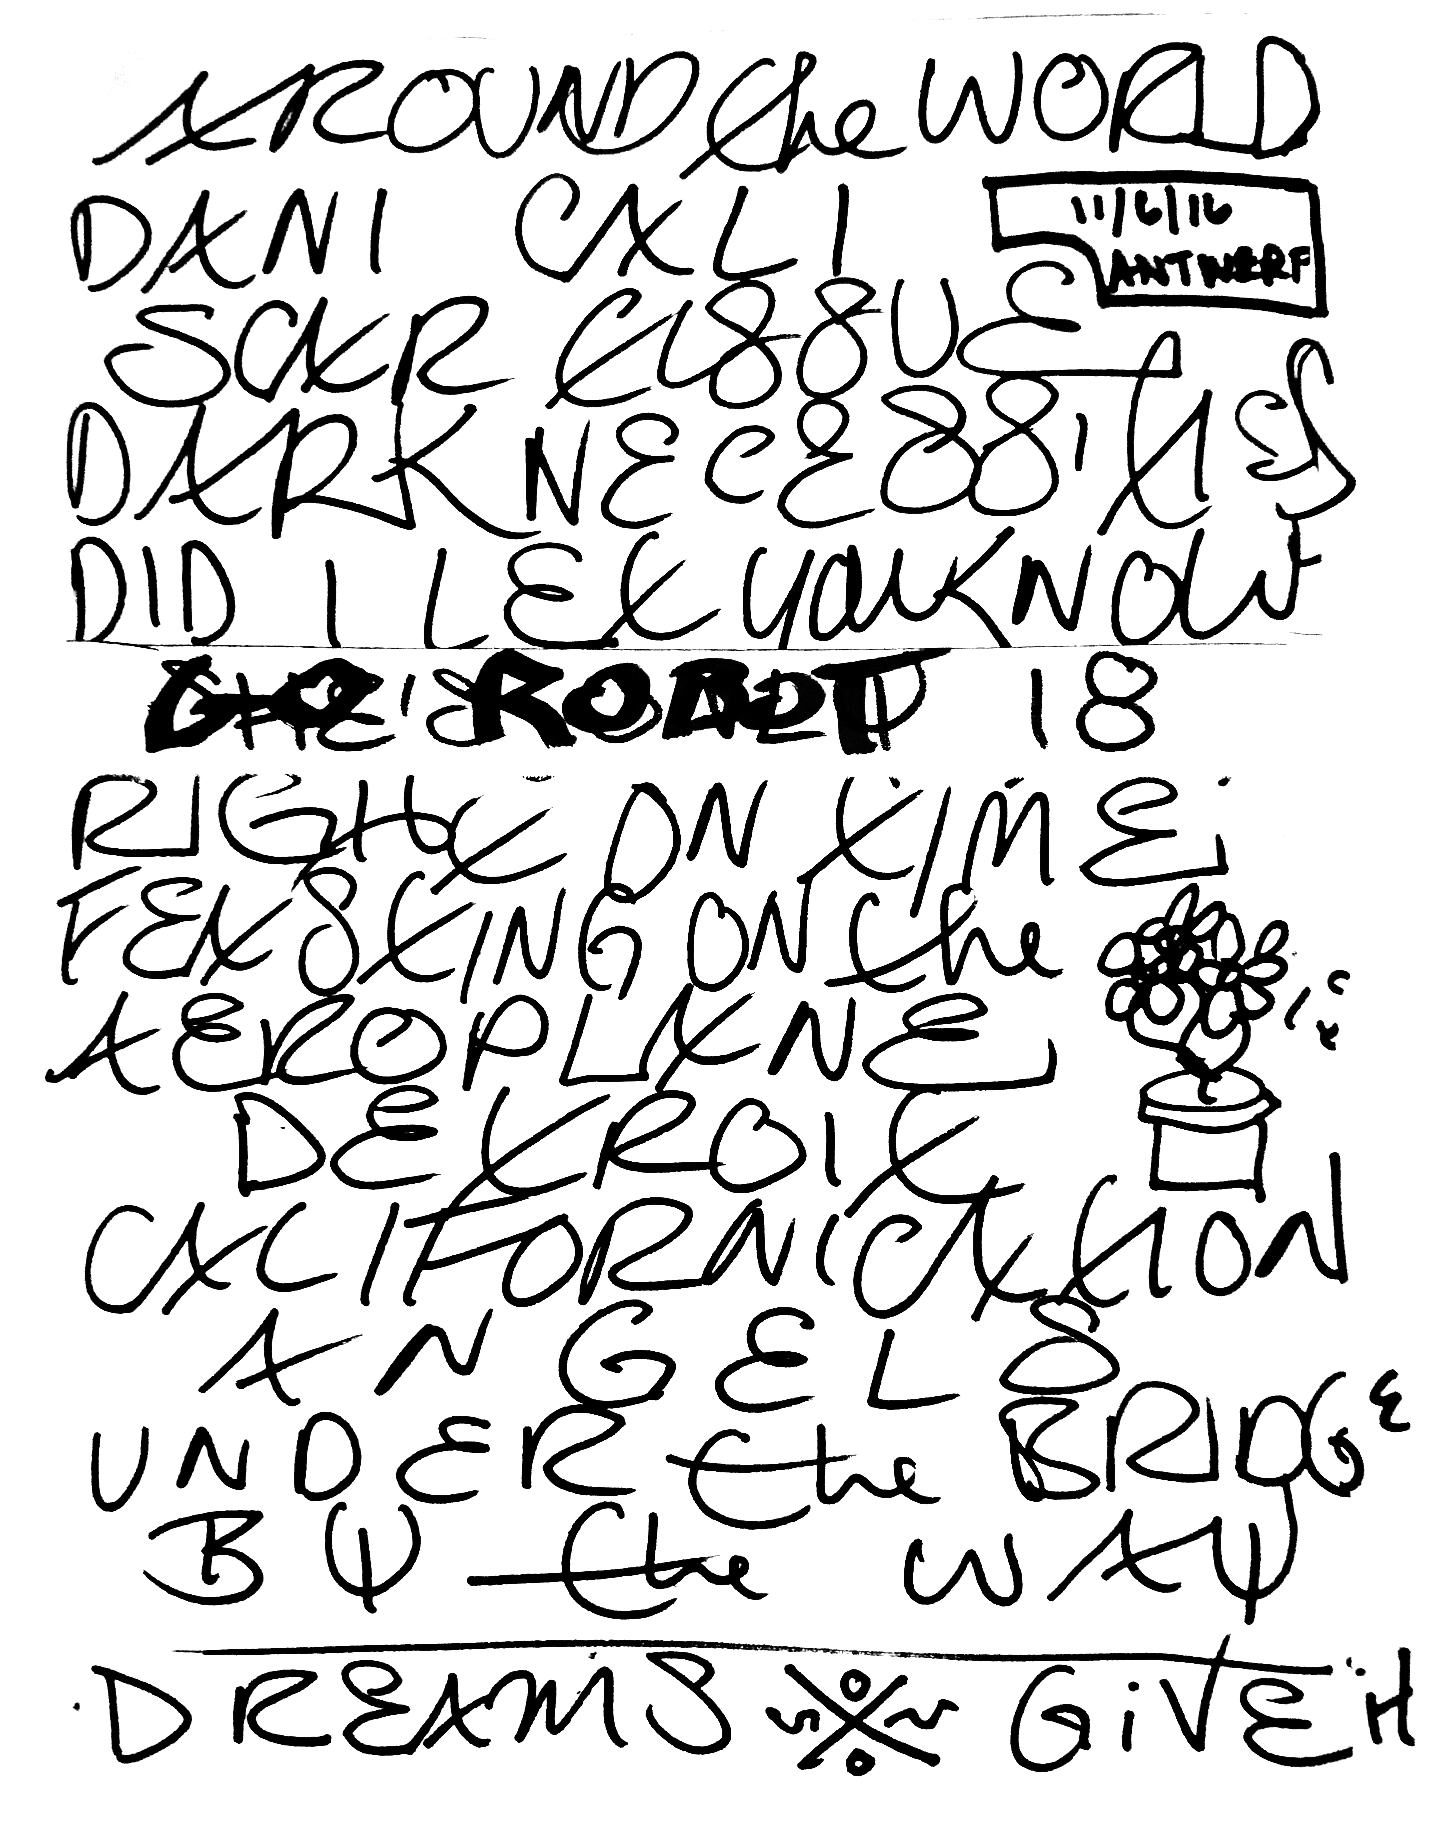 AROUND the WORLD
DANI CALI
11/6/16
ANTWERP
SCAR TISSUE
DARK NECESSITIES
DID I LET YOU KNOW
GO ROBOT 18
RIGHT ON TIME
FEASTING ON the
AEROPLANE
DETROIT
CALIFORNICATION
ANGELS
UNDER the BRIDGE
BY the WAY
DREAMS GiVE it